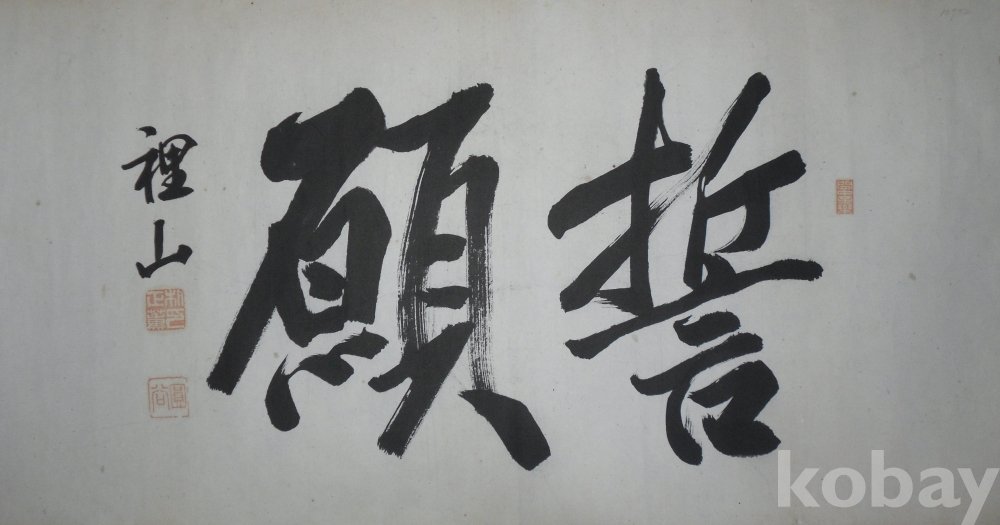 誓願
裡山
kobay